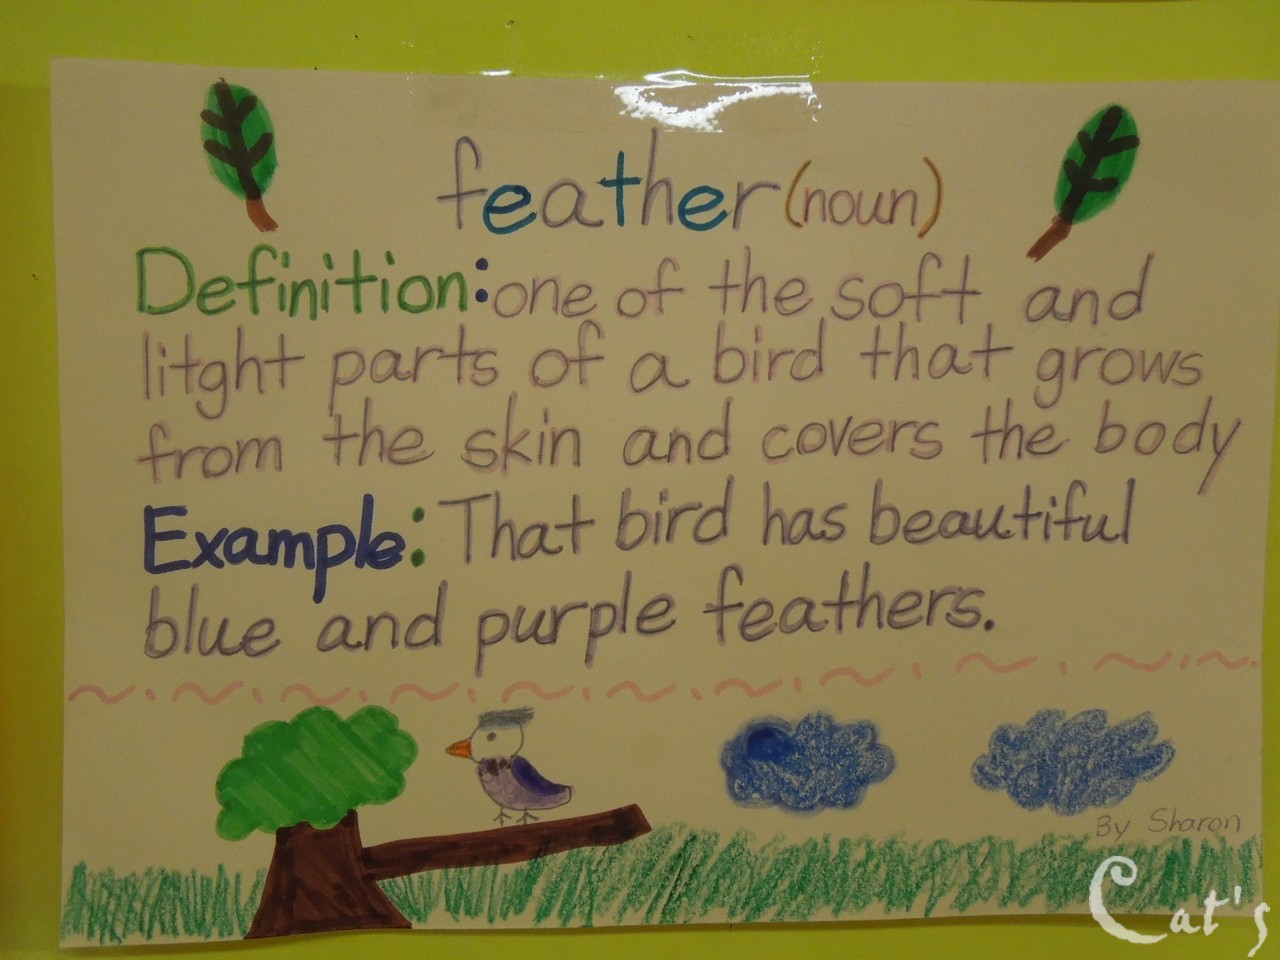 feather (noun)
Definition: one of the soft and
litght parts of a bird that grows
from the skin and covers the body
Example: That bird has beautiful
blue and purple feathers.
By Sharon
Cat's